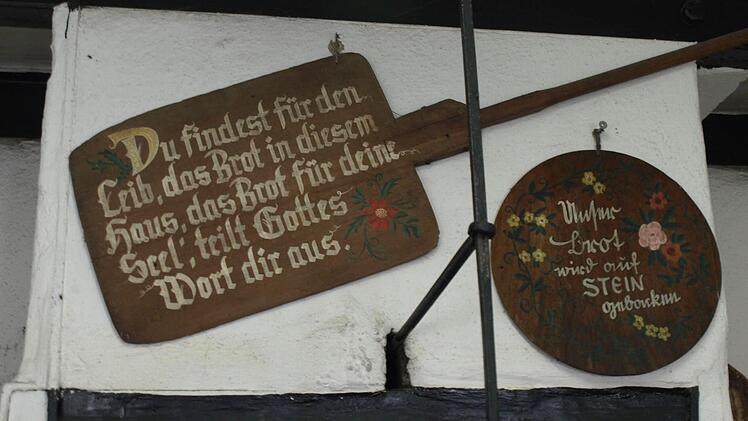 Du findest für den
Leib, das Brot in diesem
Haus, das Brot für deine
Seel', teilt Gottes
Wort dir aus.
Unser
Brot
wird auf
STEIN
gebacken